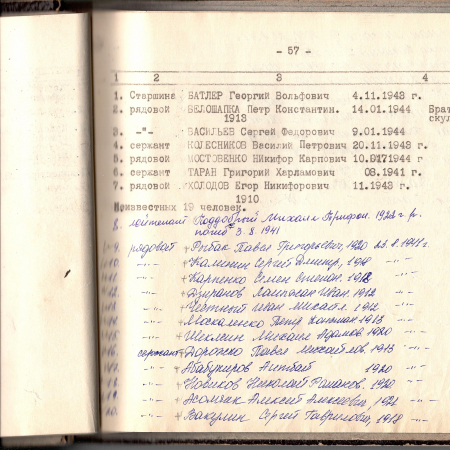 - 57 -
1 2 3 4
1. Старшина БАТЛЕР Георгий Вольфович 4.11.1943 г.
2. рядовой БЕЛОШАПКА Петр Константин. 14.01.1944 Брат
1913 скул
3. -"- ВАСИЛЬЕВ Сергей Федорович 9.01.1944
4. сержант КОЛЕСНИКОВ Василий Петрович 20.11.1943 г.
5. рядовой МОСТОВЕНКО Никифор Карпович 10.01.1944 г
6. сержант ТАРАН Григорий Харламович 08.1941 г.
7. рядовой ХОЛОДОВ Егор Никифорович 11.1943 г.
1910
Неизвестных 19 человек.
8. лейтенант Поддобрый Михаил Трифон. г.р.
погиб 3.8.1941
9. рядовой Рыбак Павел Григорович, 1920
10. -"- Каминин Сергей Дмитр,
11. -"- Карпенко Семен Степан. 1918 -"-
12. -"- Иван. 1912 -"-
-"- Иван Михайл. 1912 -"-
-"- Москаленко Петр 1913 -"-
-"- Михаил Адамов 1920 -"-
сержант Дорожко Павел Михайлов. 1913 -"-
-"- Абабукиров 1920 -"-
-"- Новиков Николай Романов. 1920 -"-
-"- Алексей Алексеевич, -"-
20. -"- Вакулин Сергей Гаврилович, 1918 -"-